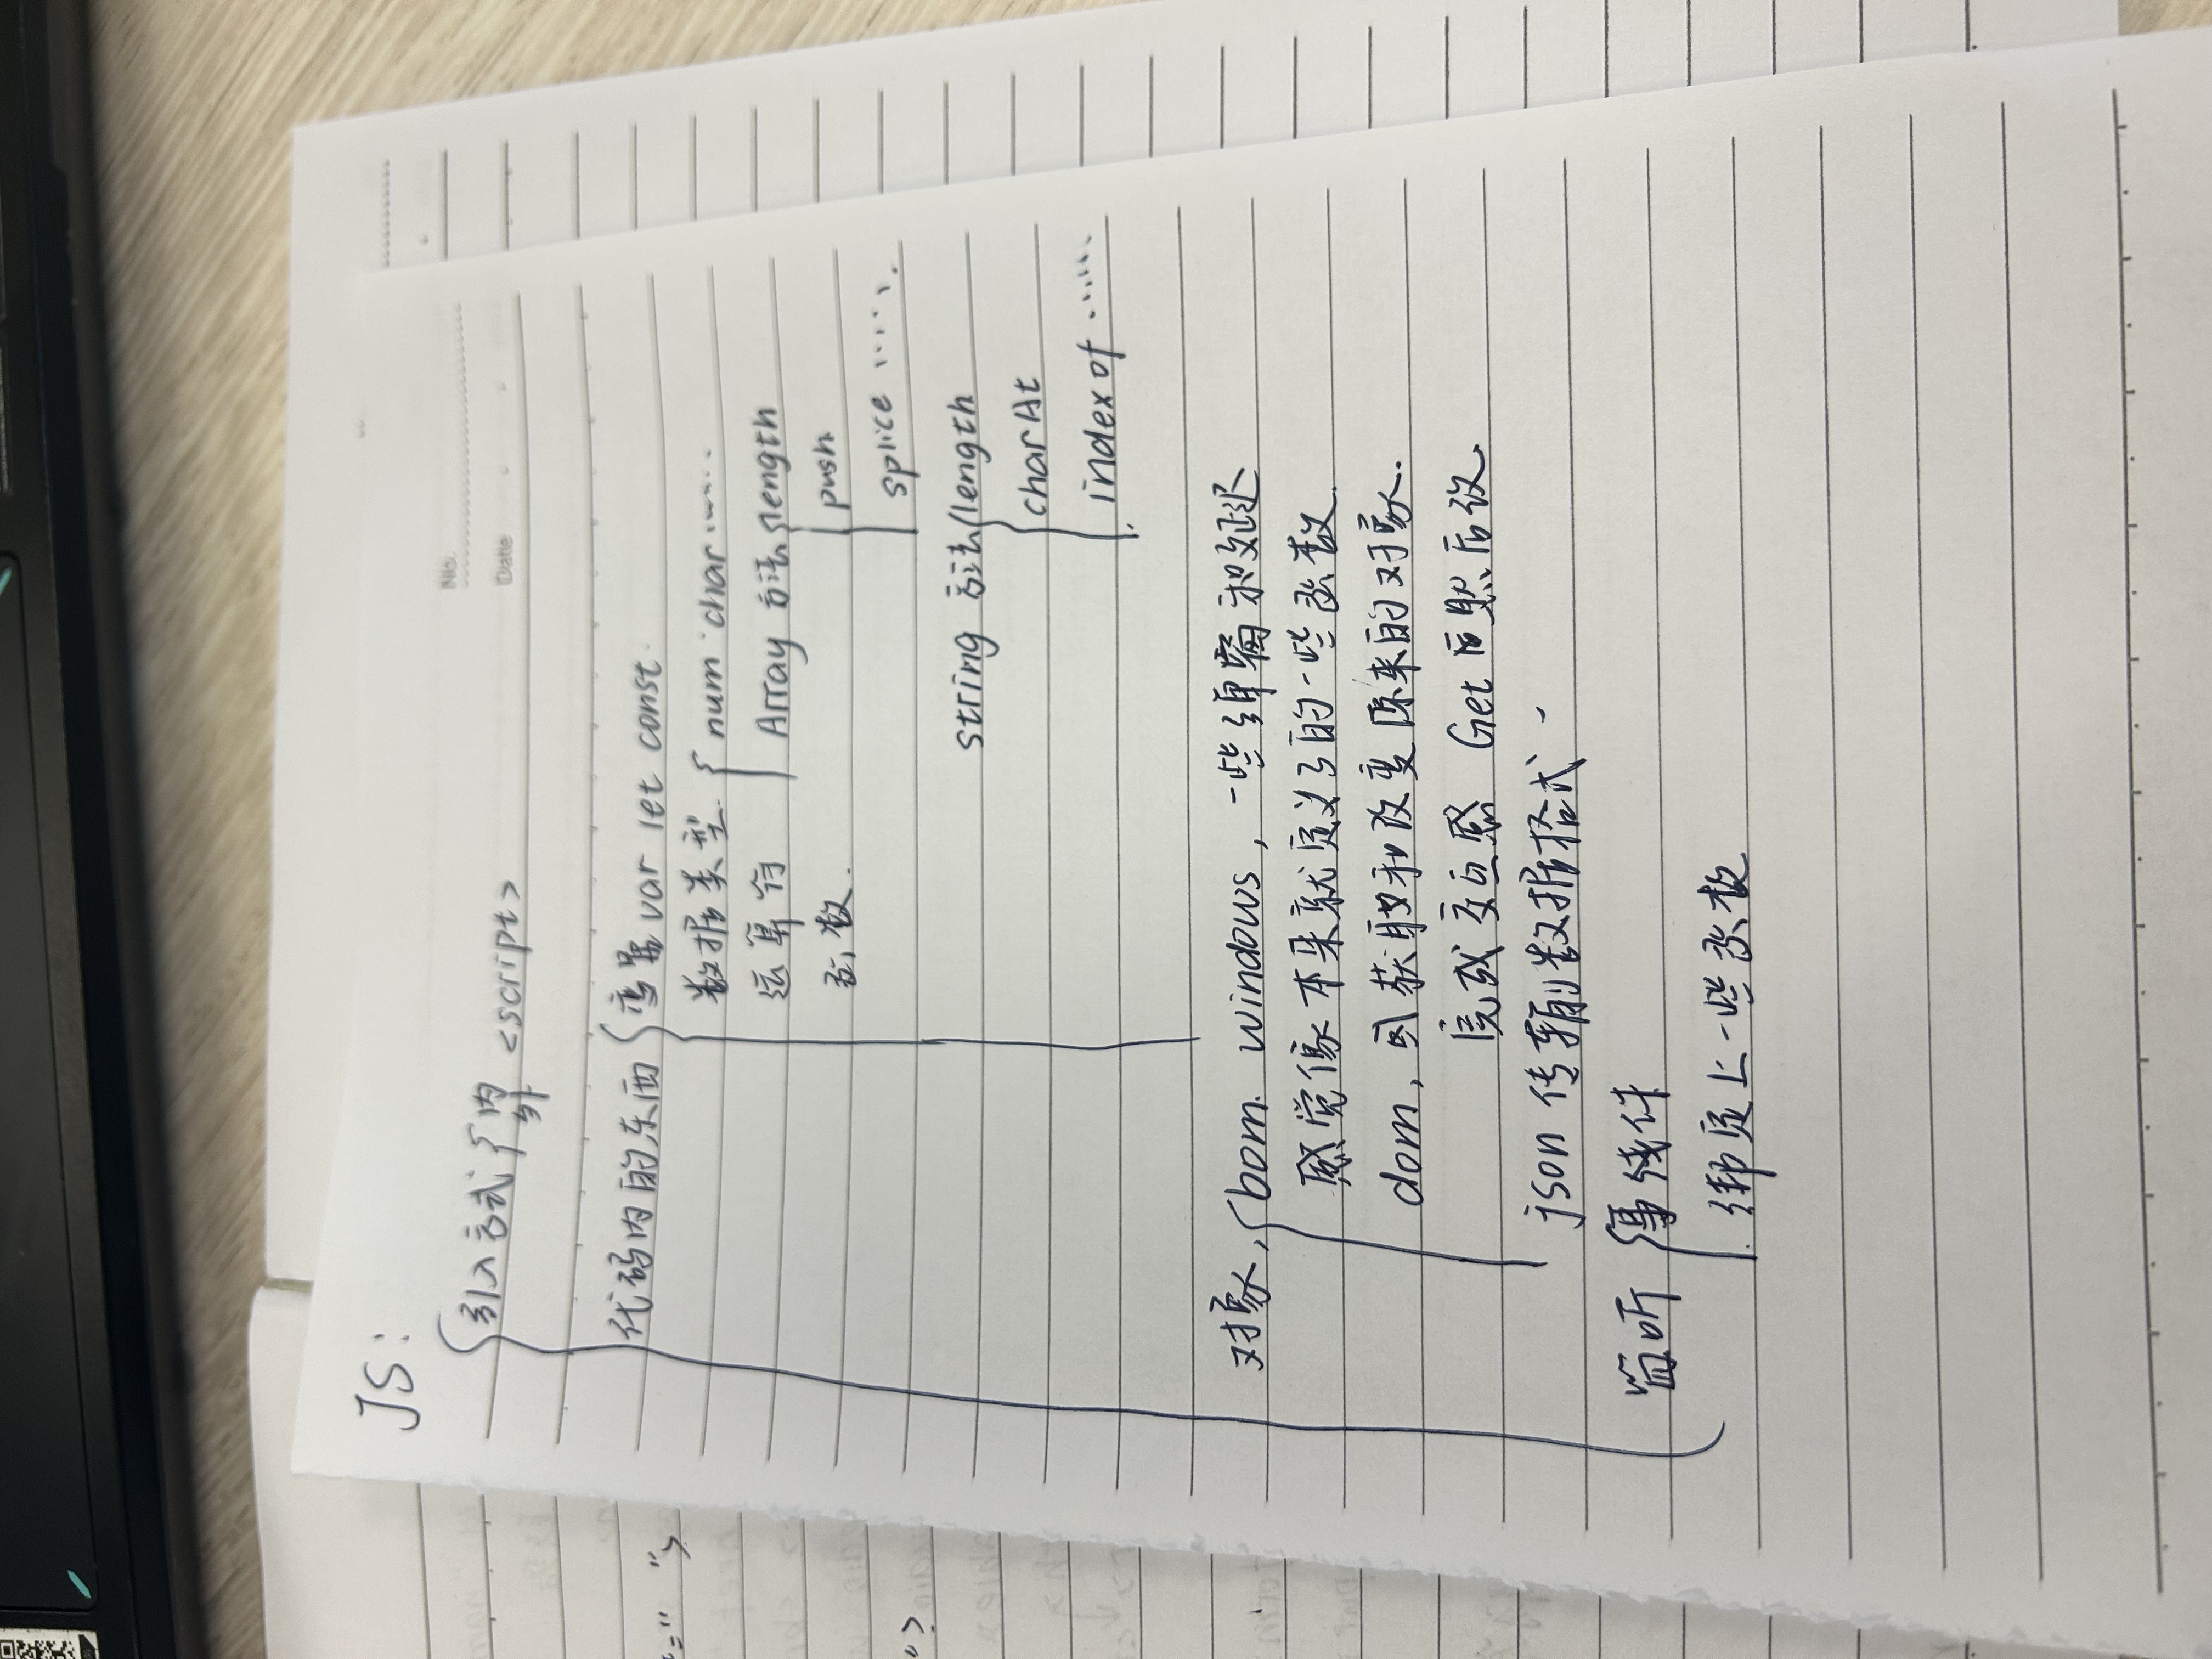 JS:
No.
引入方式 { 内
外 <script>
Date
代码内的东西 { 变量 var let const.
数据类型 { num char ......
运算符
Array 方法 { length
函数.
push
splice ......
string 方法 { length
charAt
indexof ......
对象, { bom. windows, 一些弹窗和延迟
感觉像本来就定义了的一些函数.
dom, 获取和改变原来的对象.
完成交互感 Get 后然后改.
json 传输数据格式.
监听 { 事 件
绑定上一些函数
=" ">
">